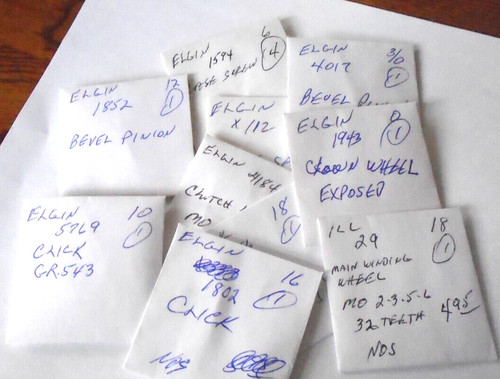 ELGIN 6
1594 4
ELGIN 3/0
4017 1
BEVEL
ELGIN 12
1852 1
BEVEL PINION
ELGIN
X/112
ELGIN 0
1943 1
CROWN WHEEL
EXPOSED
ELGIN 4184
CLUTCH
MO
18
ELGIN 10
5769 1
CLICK
GR.543
ELGIN 16
1802 1
CLICK
NOS
ILL 18
29 1
MAIN WINDING
WHEEL
MO 2-3-5-6
32 TEETH 4.95
NOS